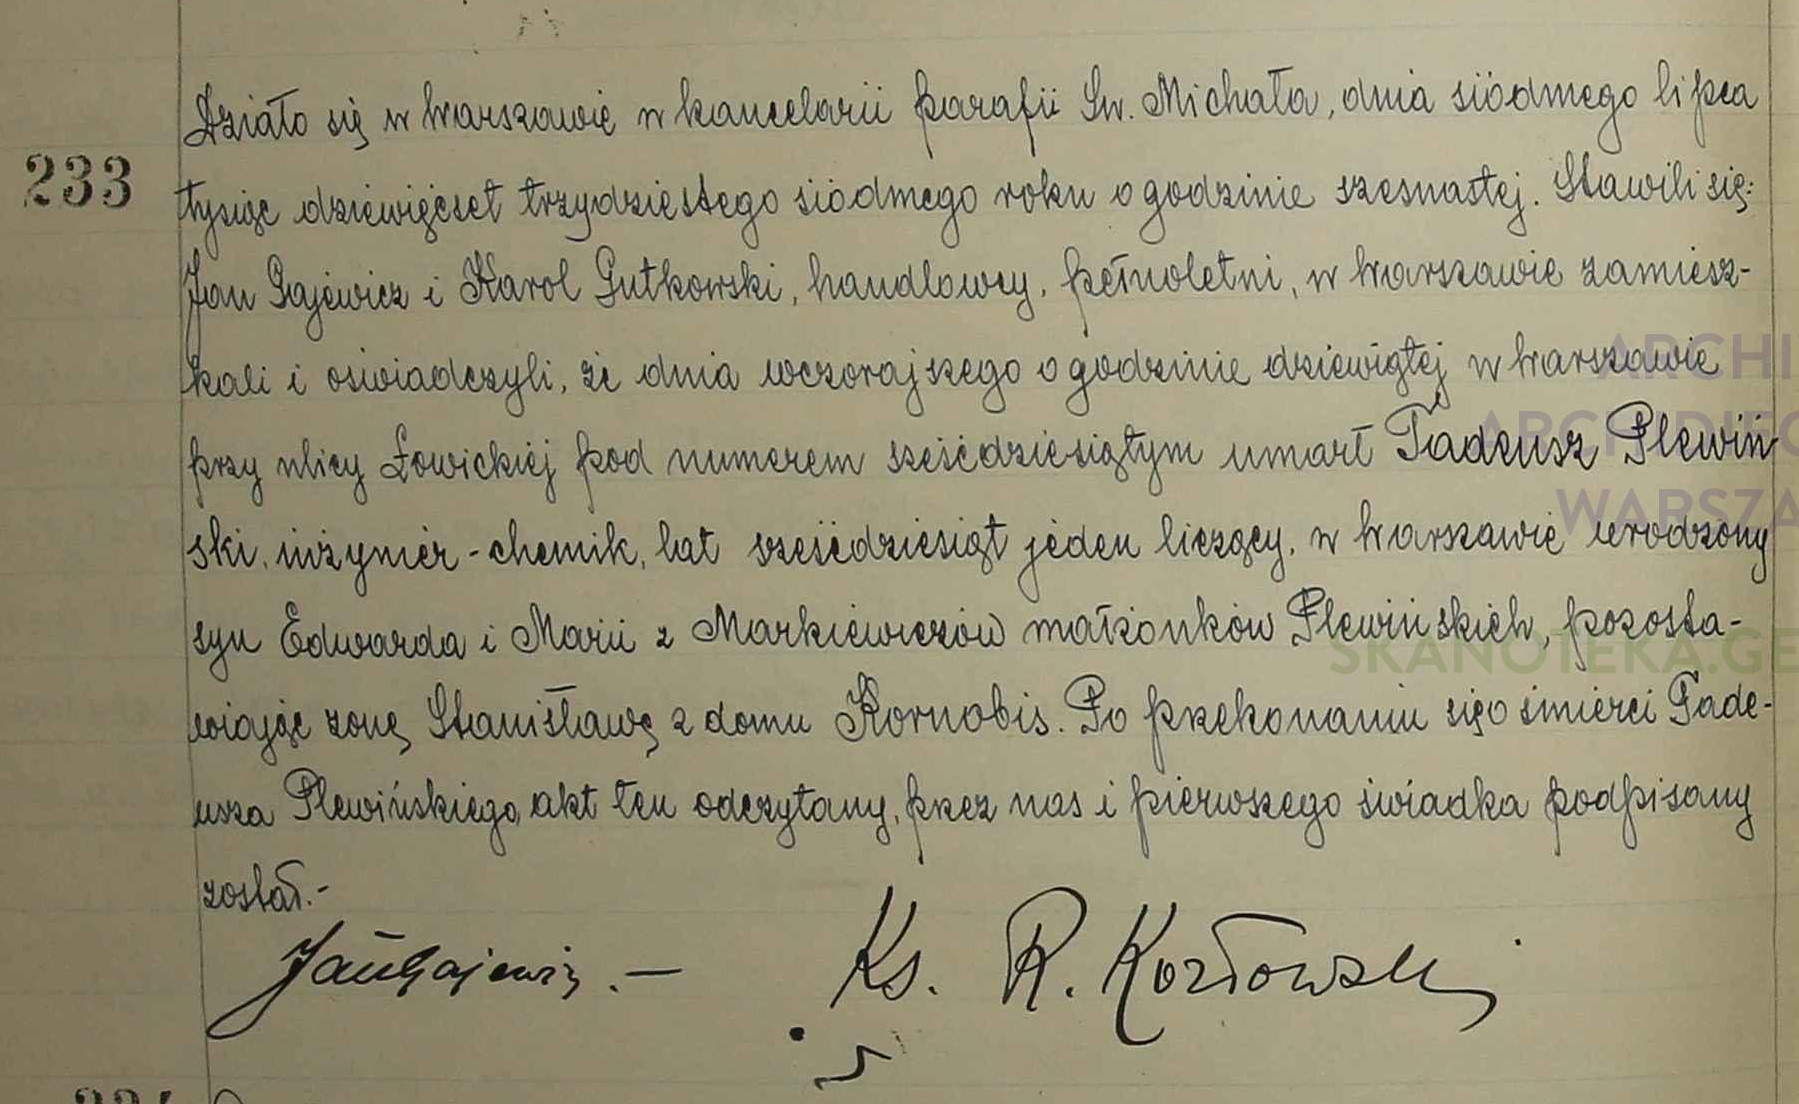 Działo się w Warszawie w kancelarii parafii Św. Michała, dnia siódmego lipca
233
tysiąc dziewięćset trzydziestego siódmego roku o godzinie szesnastej. Stawili się:
Jan Gajewicz i Karol Gutkowski, handlowcy, pełnoletni, w Warszawie zamiesz-
kali i oświadczyli, że dnia wczorajszego o godzinie dziewiątej w Warszawie
przy ulicy Łowickiej pod numerem sześćdziesiątym umarł Tadeusz Plewiń
ski, inżynier-chemik, lat sześćdziesiąt jeden liczący, w Warszawie urodzony
syn Edwarda i Marii z Markiewiczów małżonków Plewińskich, pozosta-
wiając żonę Stanisławę z domu Kornobis. Po przekonaniu się o śmierci Tade-
usza Plewińskiego, akt ten odczytany, przez nas i pierwszego świadka podpisany
został.-
Jan Gajewicz.- Ks. R. Kozłowski
ARCHI
ARCHIDIEC
WARSZA
SKANOTEKA.GE